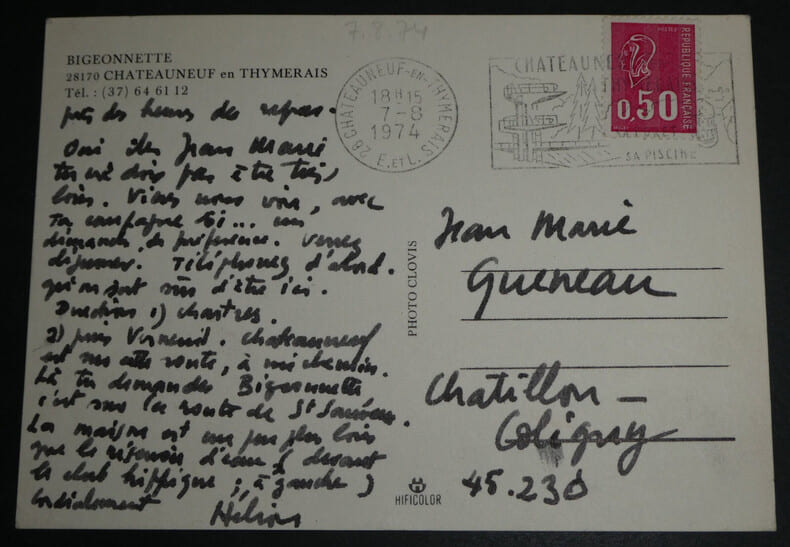 7.8.74
BIGEONNETTE
28170 CHATEAUNEUF en THYMERAIS
Tél. : (37) 64 61 12
près des heures des repas.
Oui Jean Marie
tu ne dois pas être très
loin. Viens nous voir, avec
ta compagne si... un
dimanche, de préférence. Venez
déjeuner. Téléphonez d'abord.
qu'on soit sûrs d'être ici.
Direction 1) Chartres.
2) puis Verneuil. Chateauneuf
est sur cette route, à mi chemin.
Là tu demandes Bigeonnette
c'est sur la route de St Sauveur.
La maison est un peu plus loin
que le réservoir d'eau (devant
le club hippique ; à gauche)
Cordialement
Hélios
28 CHATEAUNEUF-EN-THYMERAIS
18H15
7-8
1974
E. ET L.
CHATEAUN
SA PISCINE
REPUBLIQUE FRANÇAISE
0,50
PHOTO CLOVIS
HIFICOLOR
Jean Marie
Queneau
Chatillon-
Coligny
45.230